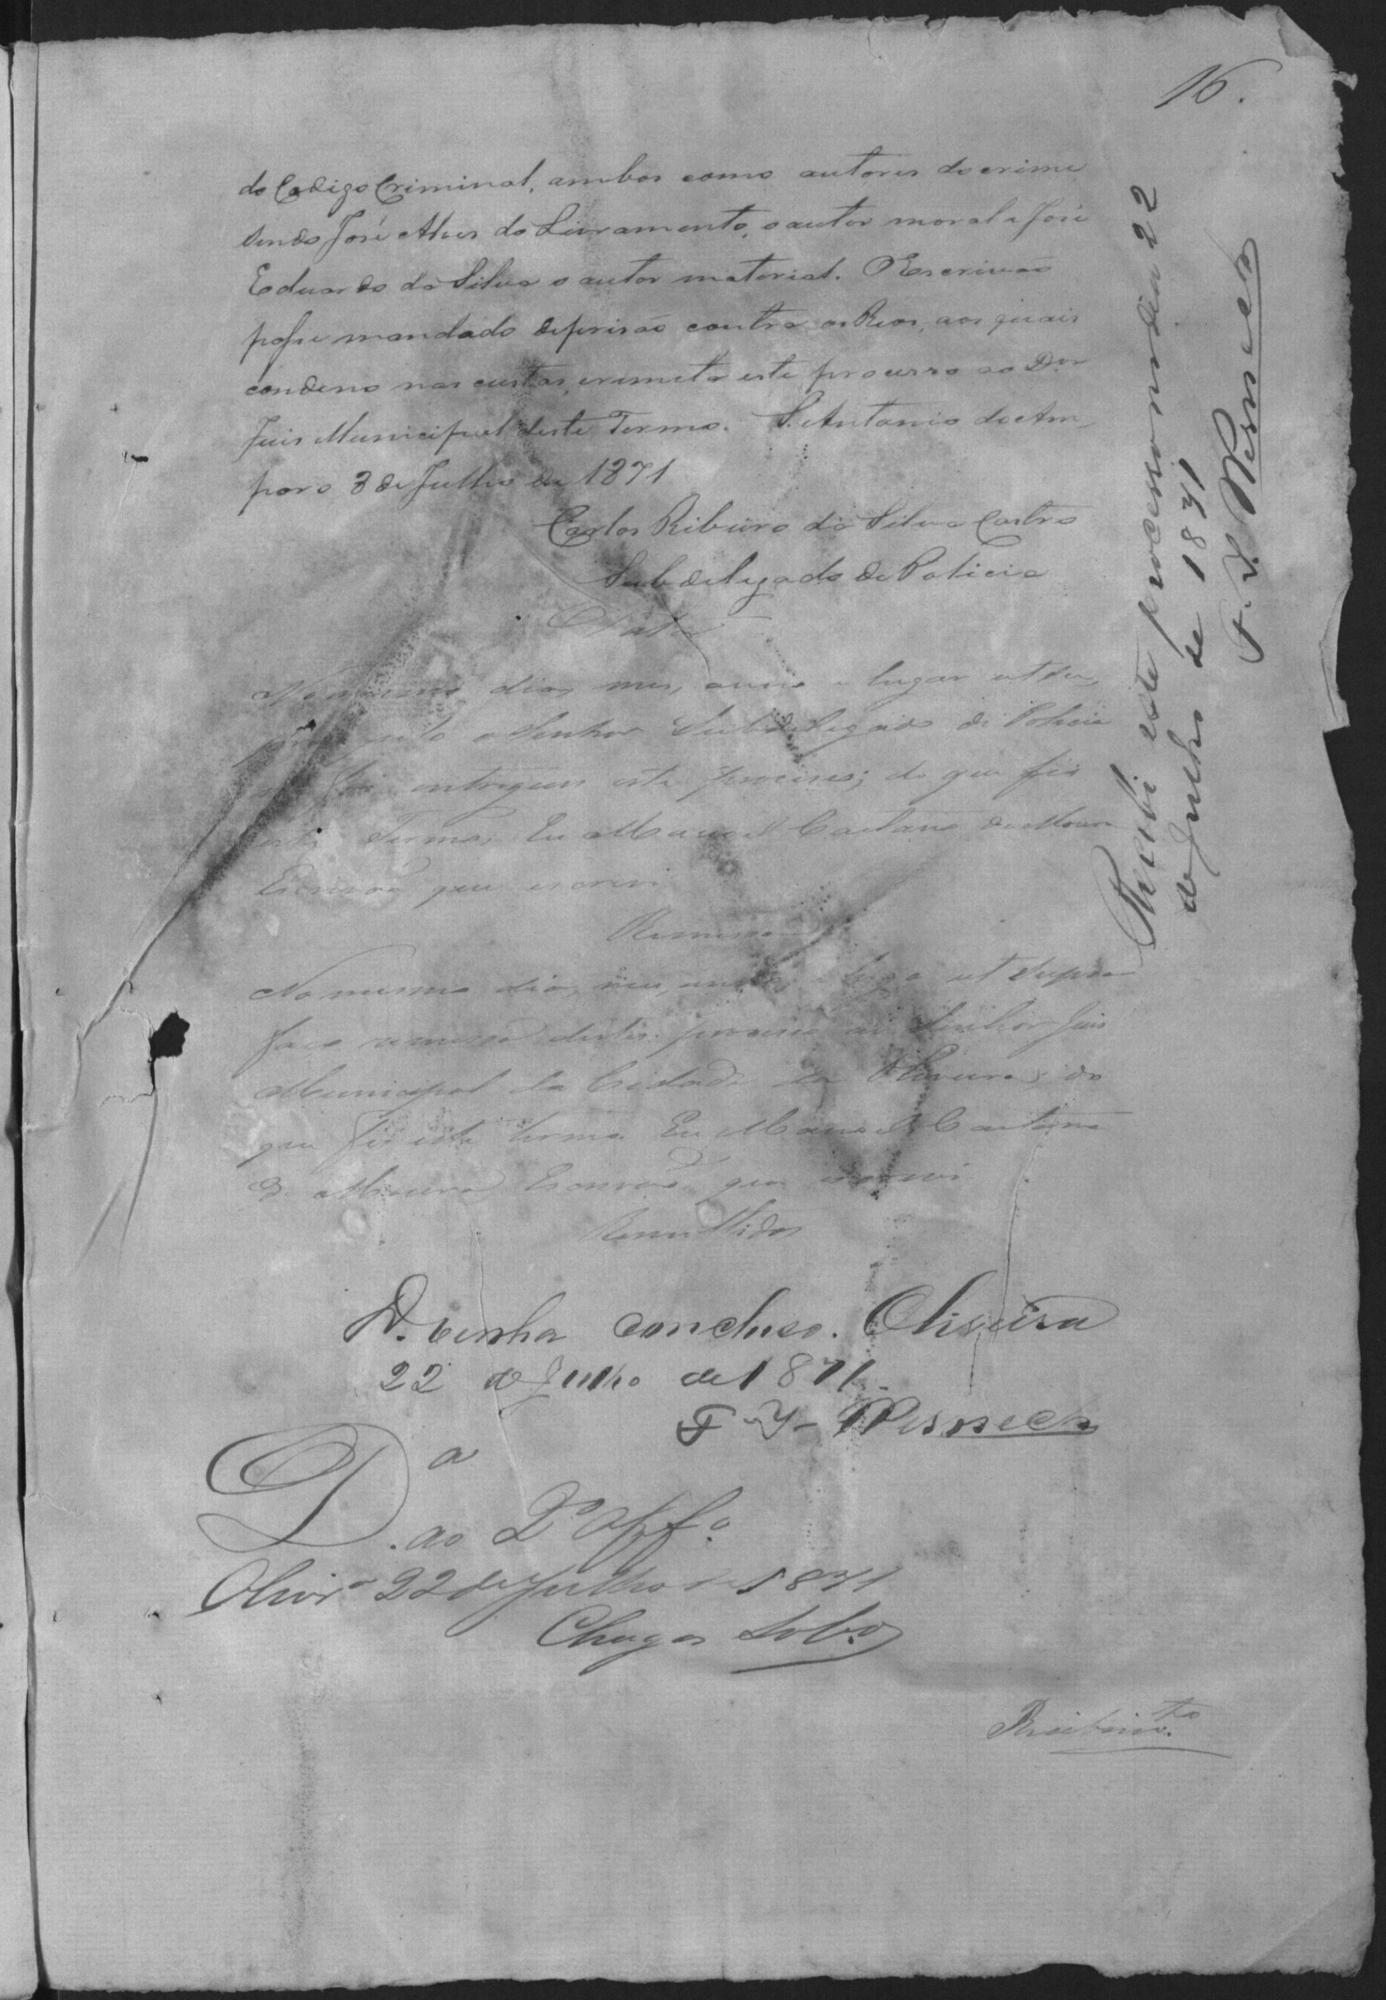 16.
do Codigo Criminal, ambos como autores do crime
sendo José Alves do Livramento, o autor moral e José
Eduardo da Silva o autor material. O Escrivaõ
passe mandado deprisaõ contra os Reos, aos quais
condeno nas custas, eremeta este processo ao Dor
Juis Municipal deste Termo. S. Antonio do Am,
paro 3 de Julho de 1871
Carlos Ribeiro da Silva Castro
Subdelegado de Policia
Data
No mesmo dia, mes, anno e lugar ut su,
o Senhor Subdelegado de Policia
foi entregue este processo; do que fis
este Termo, Eu Manoel Caetano de Moura
Escrivaõ que escrevi
Remessa
No mesmo dia, mes, anno e lugar ut supra
faco remessa deste processo ao Senhor Juis
Municipal da Cidade da Oliveira; do
que fis este termo. Eu Manoel Caetano
de Moura Escrivaõ que escrevi
Remettidos
D. venha concluso. Oliveira
22 de Julho de 1871.
F.
D.a
. ao 2º Offº
Olivrª 22 de Julho de 1871
Chagas Lobo
Recebi este processo no dia 22
de Julho de 1871
F.